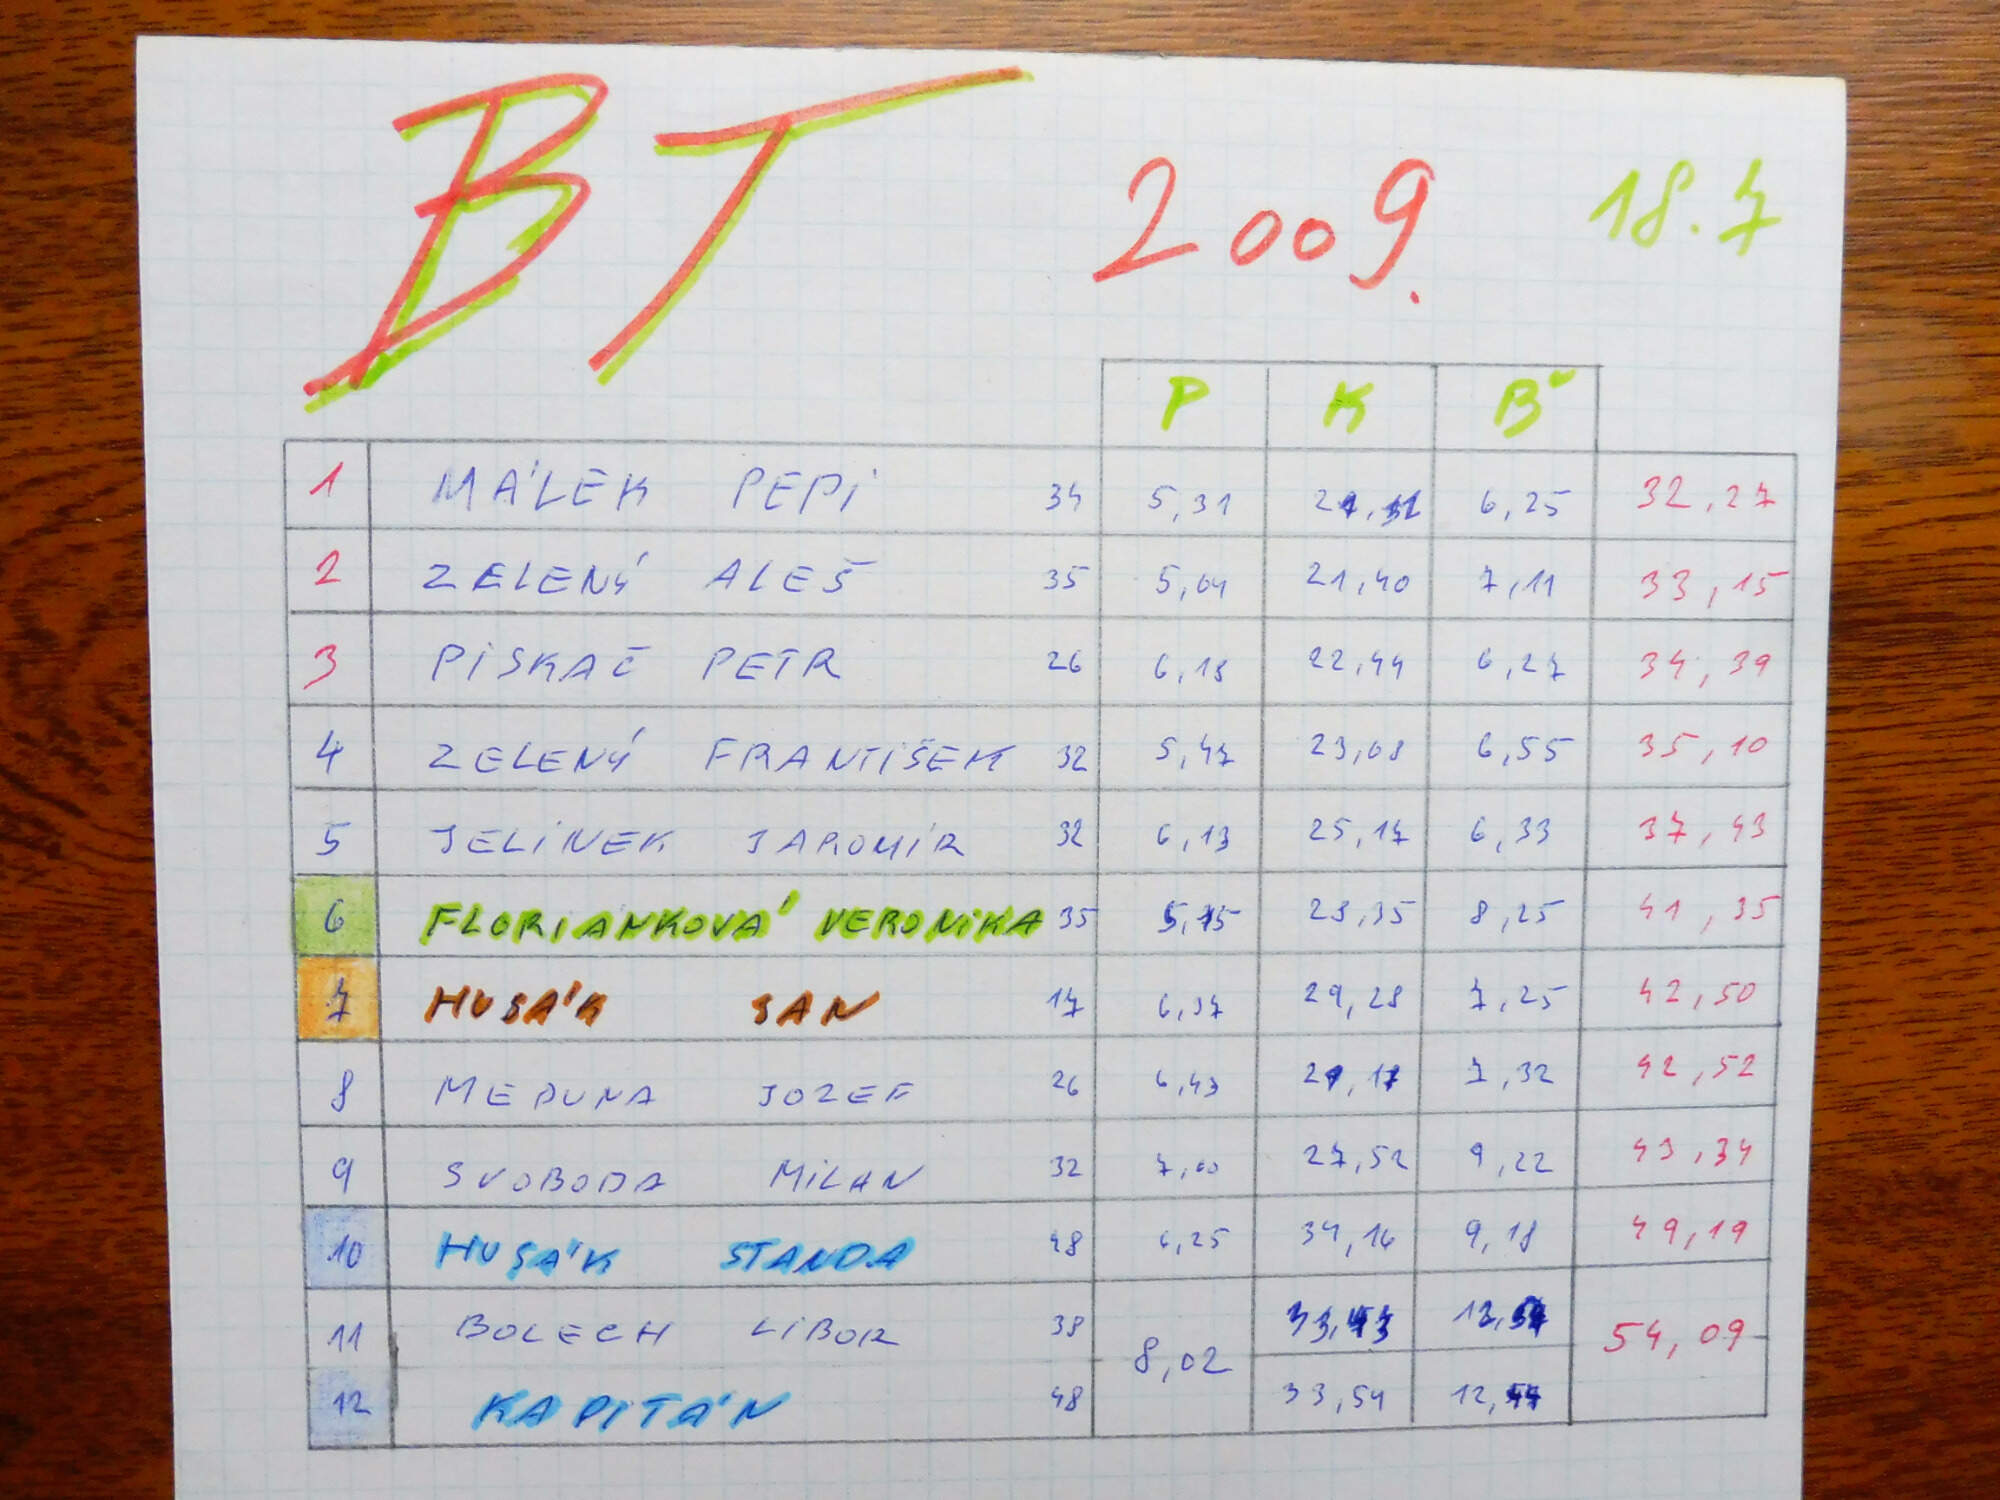 BT 2009. 18.7
P K B
1 MÁLEK PEPI 34 5,31 6,25 32,27
2 ZELENÝ ALEŠ 35 5,04 21,40 7,11 33,15
3 PISKAČ PETR 26 6,18 22,44 6,27 34,39
4 ZELENÝ FRANTIŠEK 32 5,47 23,08 6,55 35,10
5 JELÍNEK JAROMÍR 32 6,13 25,17 6,33 37,43
6 FLORIANKOVÁ VERONIKA 35 5,15 28,35 8,25 41,35
7 HUSÁK JAN 17 6,37 29,28 7,25 42,50
8 MEDUNA JOZEF 26 6,43 7,32 42,52
9 SVOBODA MILAN 32 7,00 27,52 9,22 43,34
10 HUSÁK STANDA 48 6,25 34,16 9,18 49,19
11 BOLECH LIBOR 38 8,02 33,43 54,09
12 KAPITÁN 48 33,54